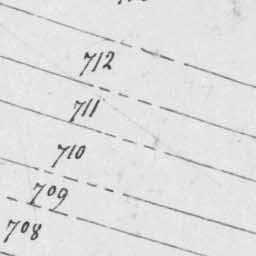 712
711
710
709
708